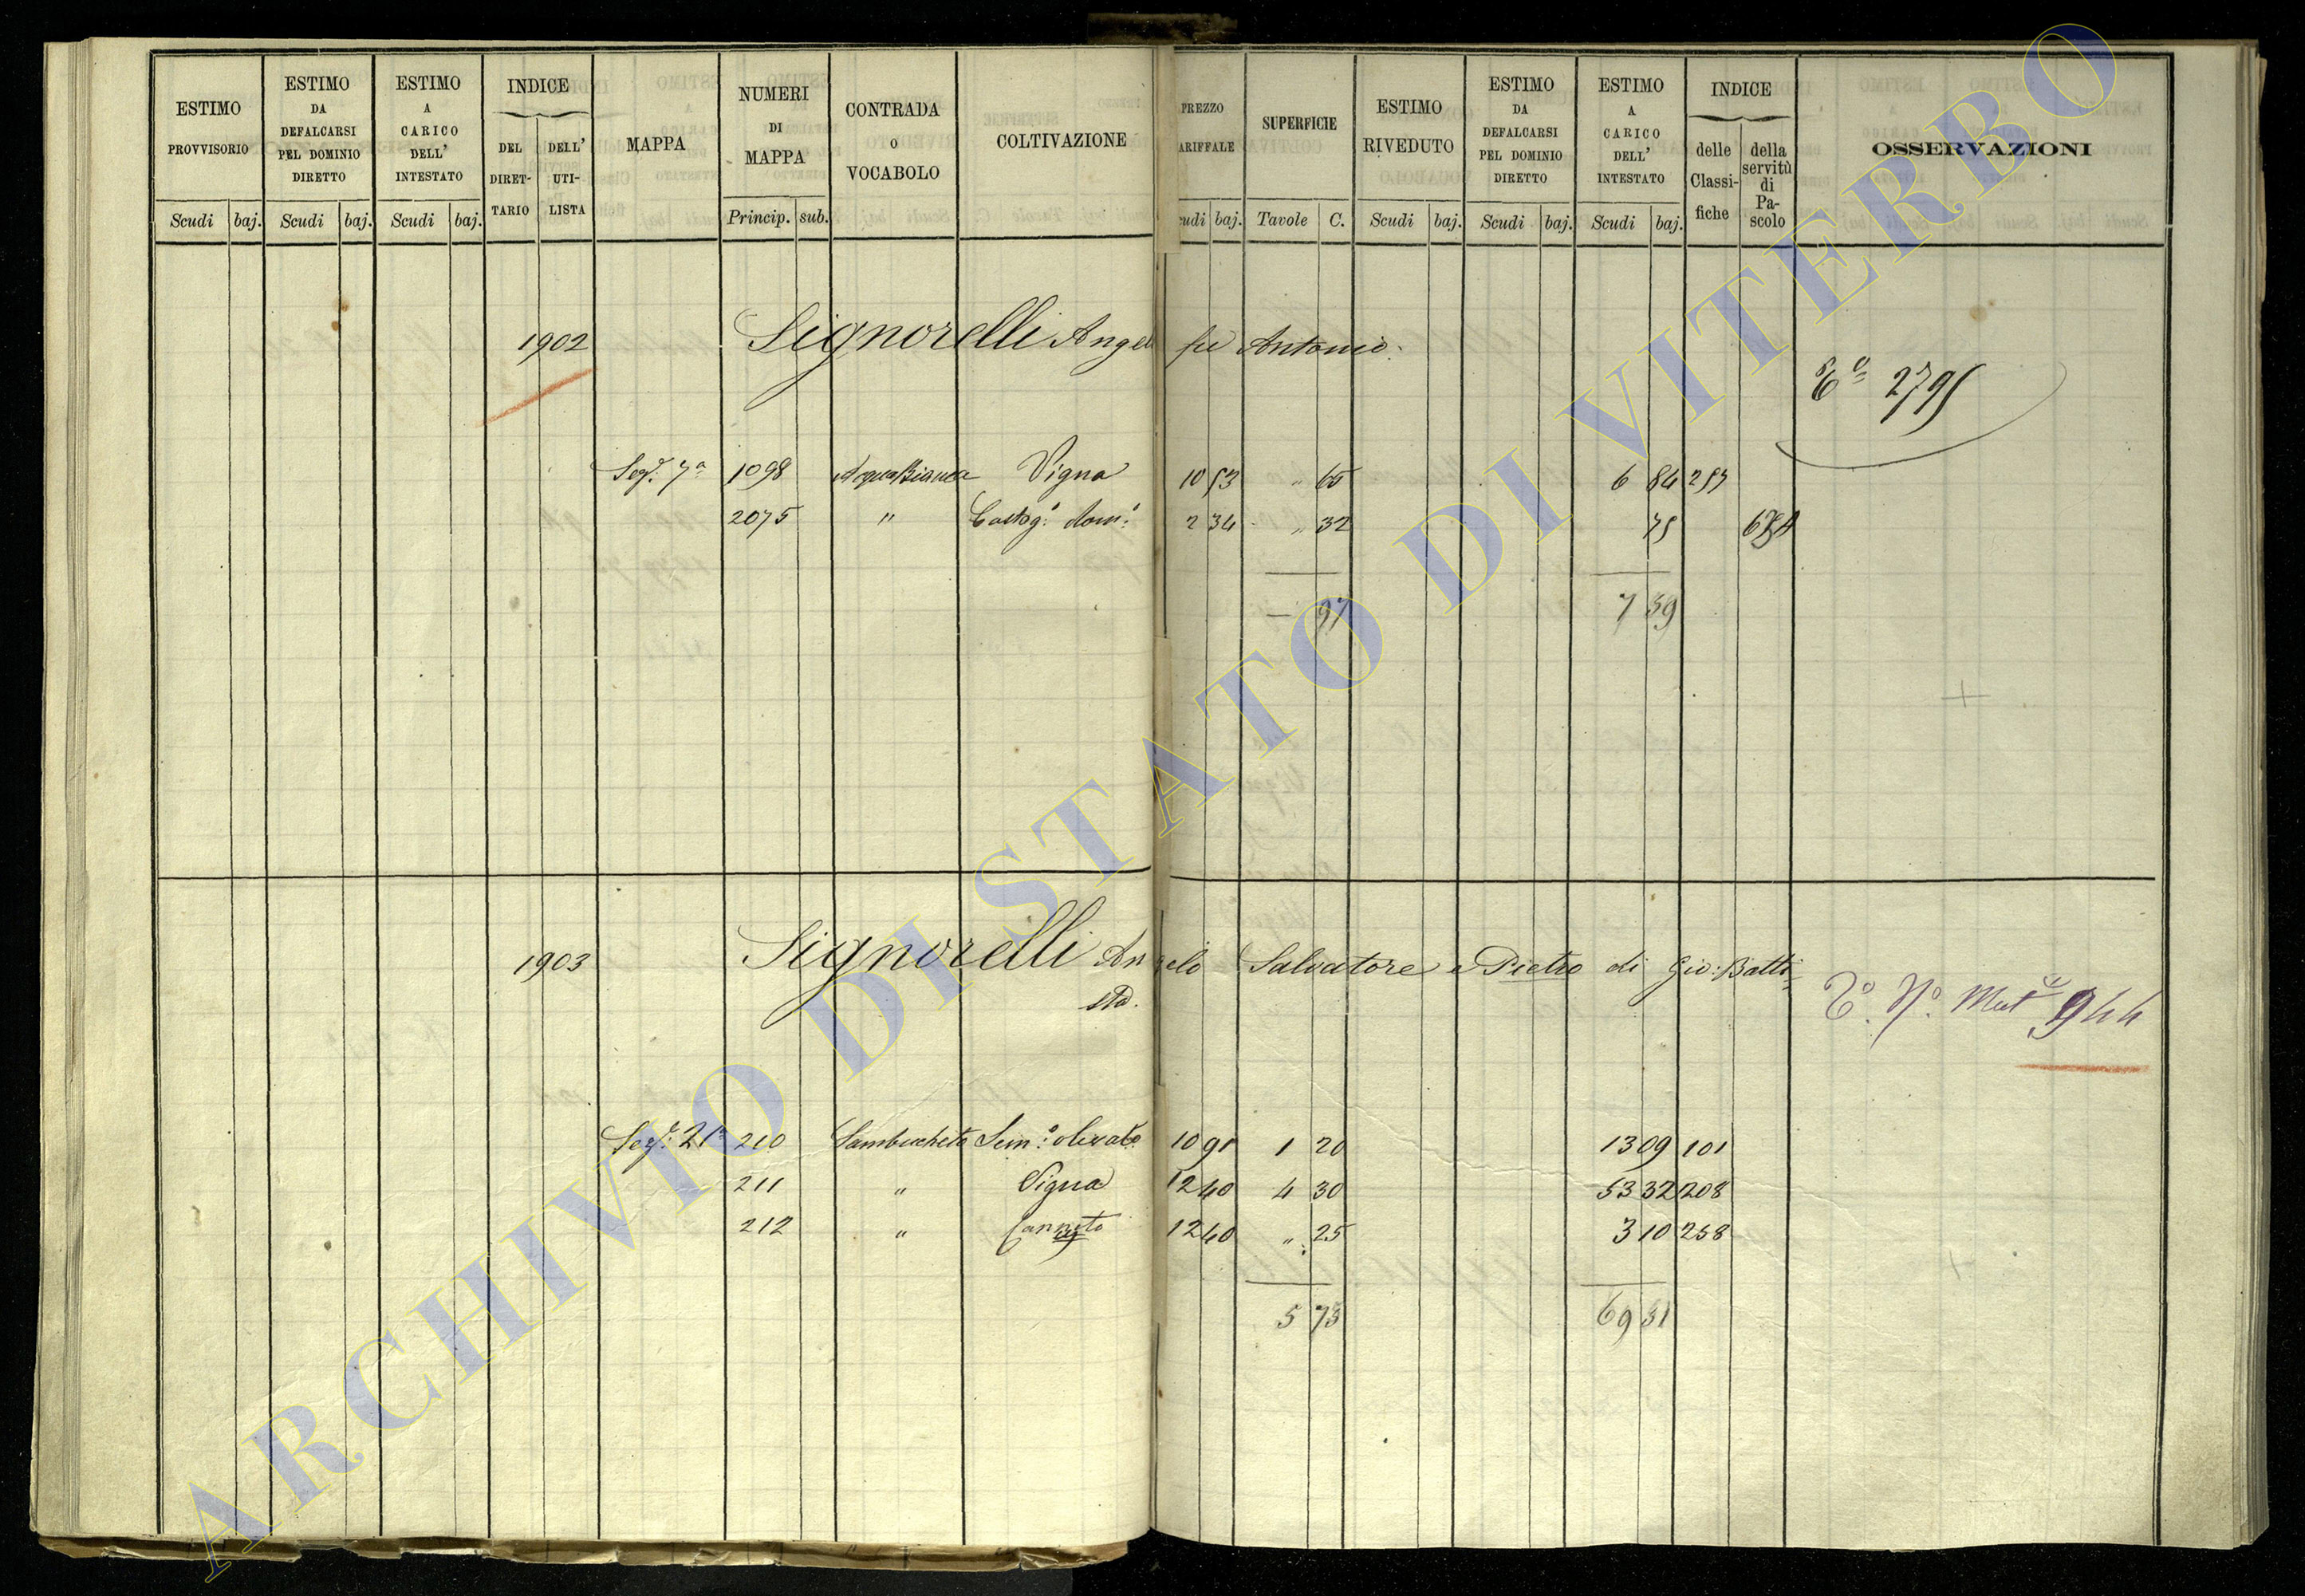 ESTIMO PROVVISORIO
ESTIMO DA DEFALCARSI PEL DOMINIO DIRETTO
ESTIMO A CARICO DELL' INTESTATO
INDICE
DEL DIRET-TARIO
DELL' UTI-LISTA
MAPPA
NUMERI DI MAPPA
CONTRADA O VOCABOLO
COLTIVAZIONE
PREZZO
ARIFFALE
SUPERFICIE
ESTIMO RIVEDUTO
ESTIMO DA DEFALCARSI PEL DOMINIO DIRETTO
ESTIMO A CARICO DELL' INTESTATO
INDICE
delle Classi-fiche
della servitù di Pa-scolo
OSSERVAZIONI
Scudi baj. Scudi baj. Scudi baj. Princip. sub. udi baj. Tavole C. Scudi baj. Scudi baj. Scudi baj.
1902 Signorelli Angelo fu Antonio
2795
Sez.e 7a 1098 Acqua Bianca Vigna 10 53 " 65 6 84 257
2075 " Castag.o dom.o 2 34 " 32 75
— 97 7 59
1903 Signorelli Angelo Salvatore e Pietro di Gio: Batti=
sta.
T.o N.o Mut.e 944
Sez.e 21a 210 Sambucheto Sem.o olivato 10 91 1 20 13 09 101
211 " Vigna 12 40 4 30 53 32 208
212 " Canneto 12 40 " 25 3 10 258
5 73 69 51
ARCHIVIO DI STATO DI VITERBO